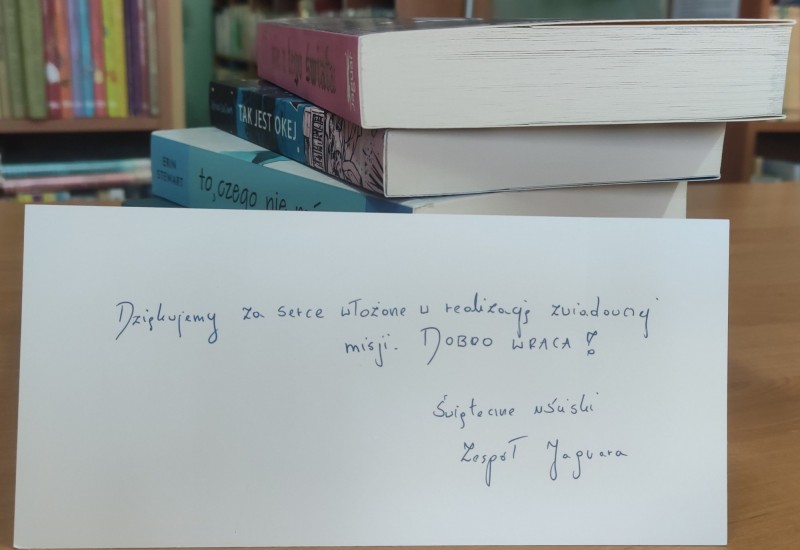 z tego świata
TAK JEST OKEJ
ERIN
STEWART
to, czego nie
Dziękujemy za serce włożone w realizację zwiadowczej
misji. DOBRO WRACA!
Świąteczne uściski
Zespół Jaguara